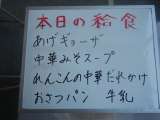 本日の給食
あげギョーザ
中華みそスープ
れんこんの中華だれかけ
おさつパン 牛乳